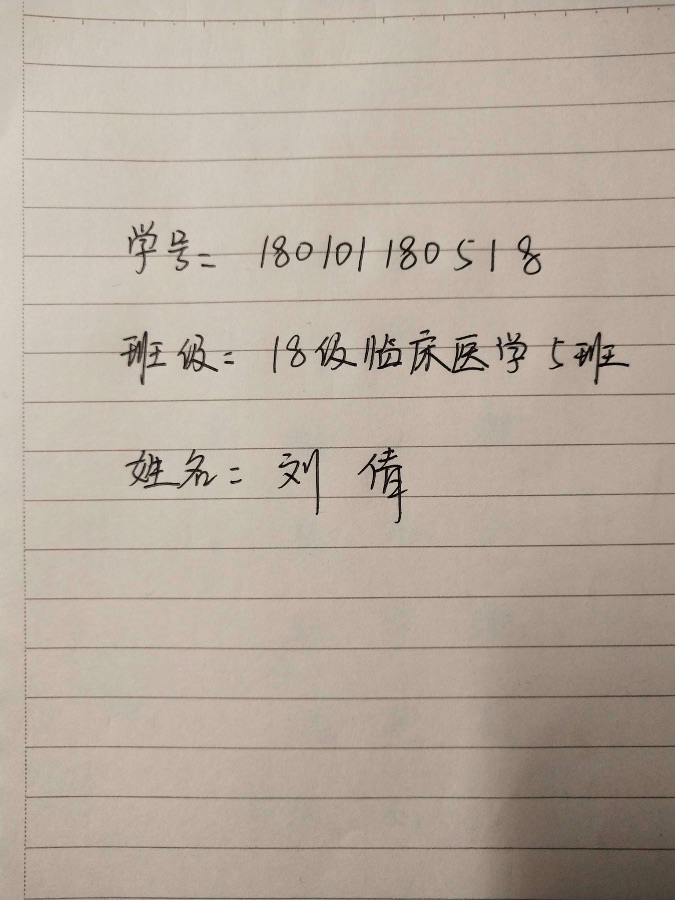 学号: 180101180518
班级: 18级临床医学5班
姓名: 刘倩